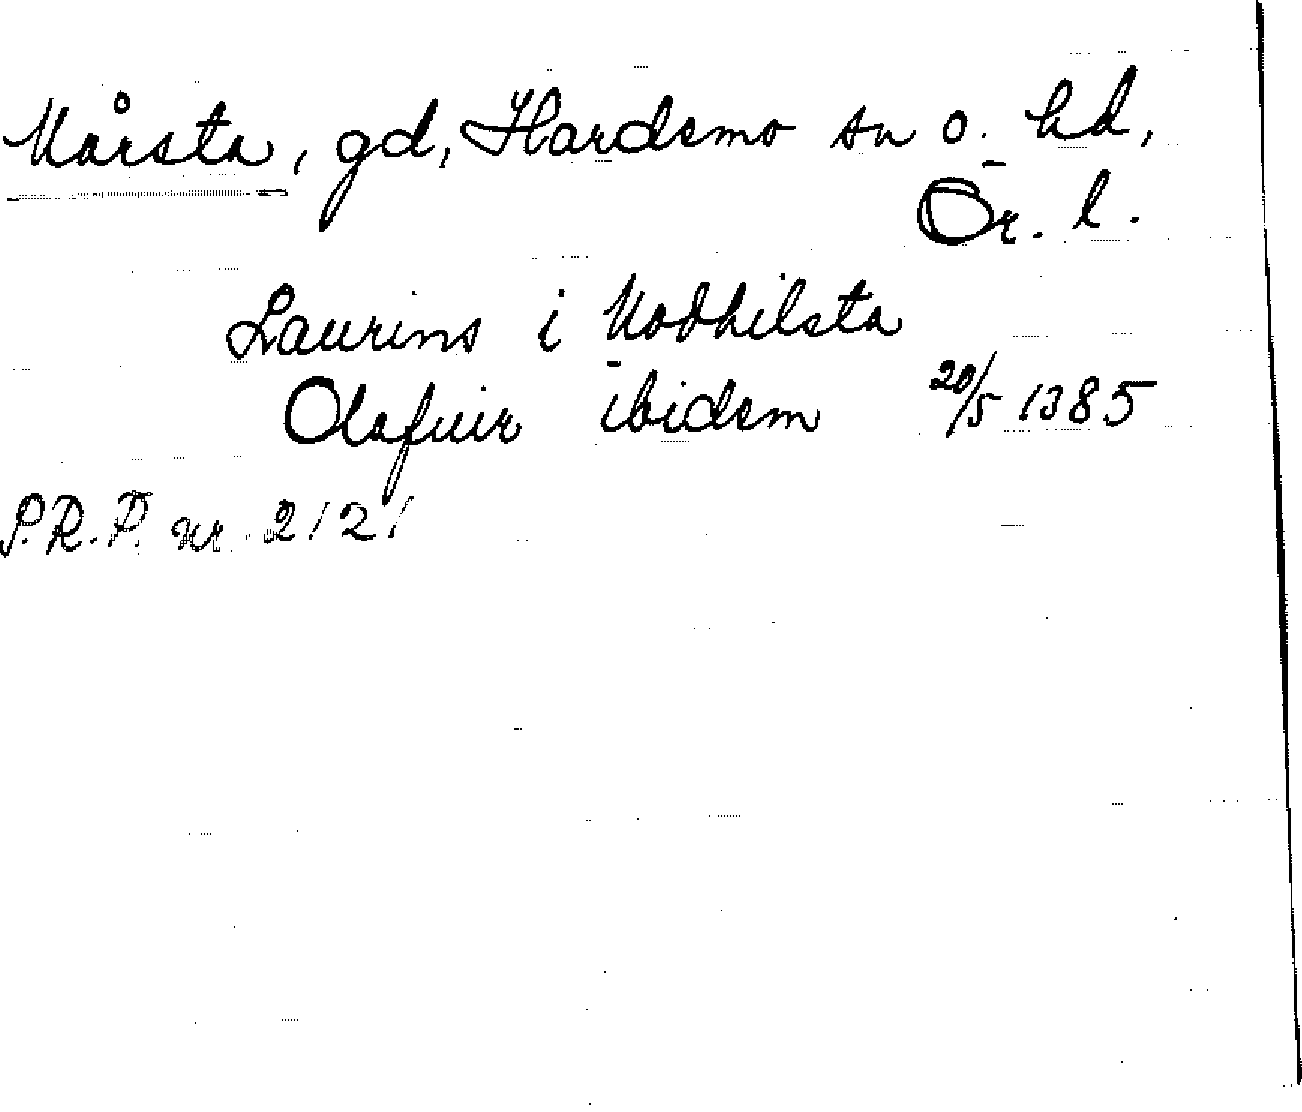 Mårsta, gd, Hardemo sn o. hd,
Ör. l.
Laurins i Modhilsta
Olafuir ibidem 20/5 1385
S.R.P. nr 2121